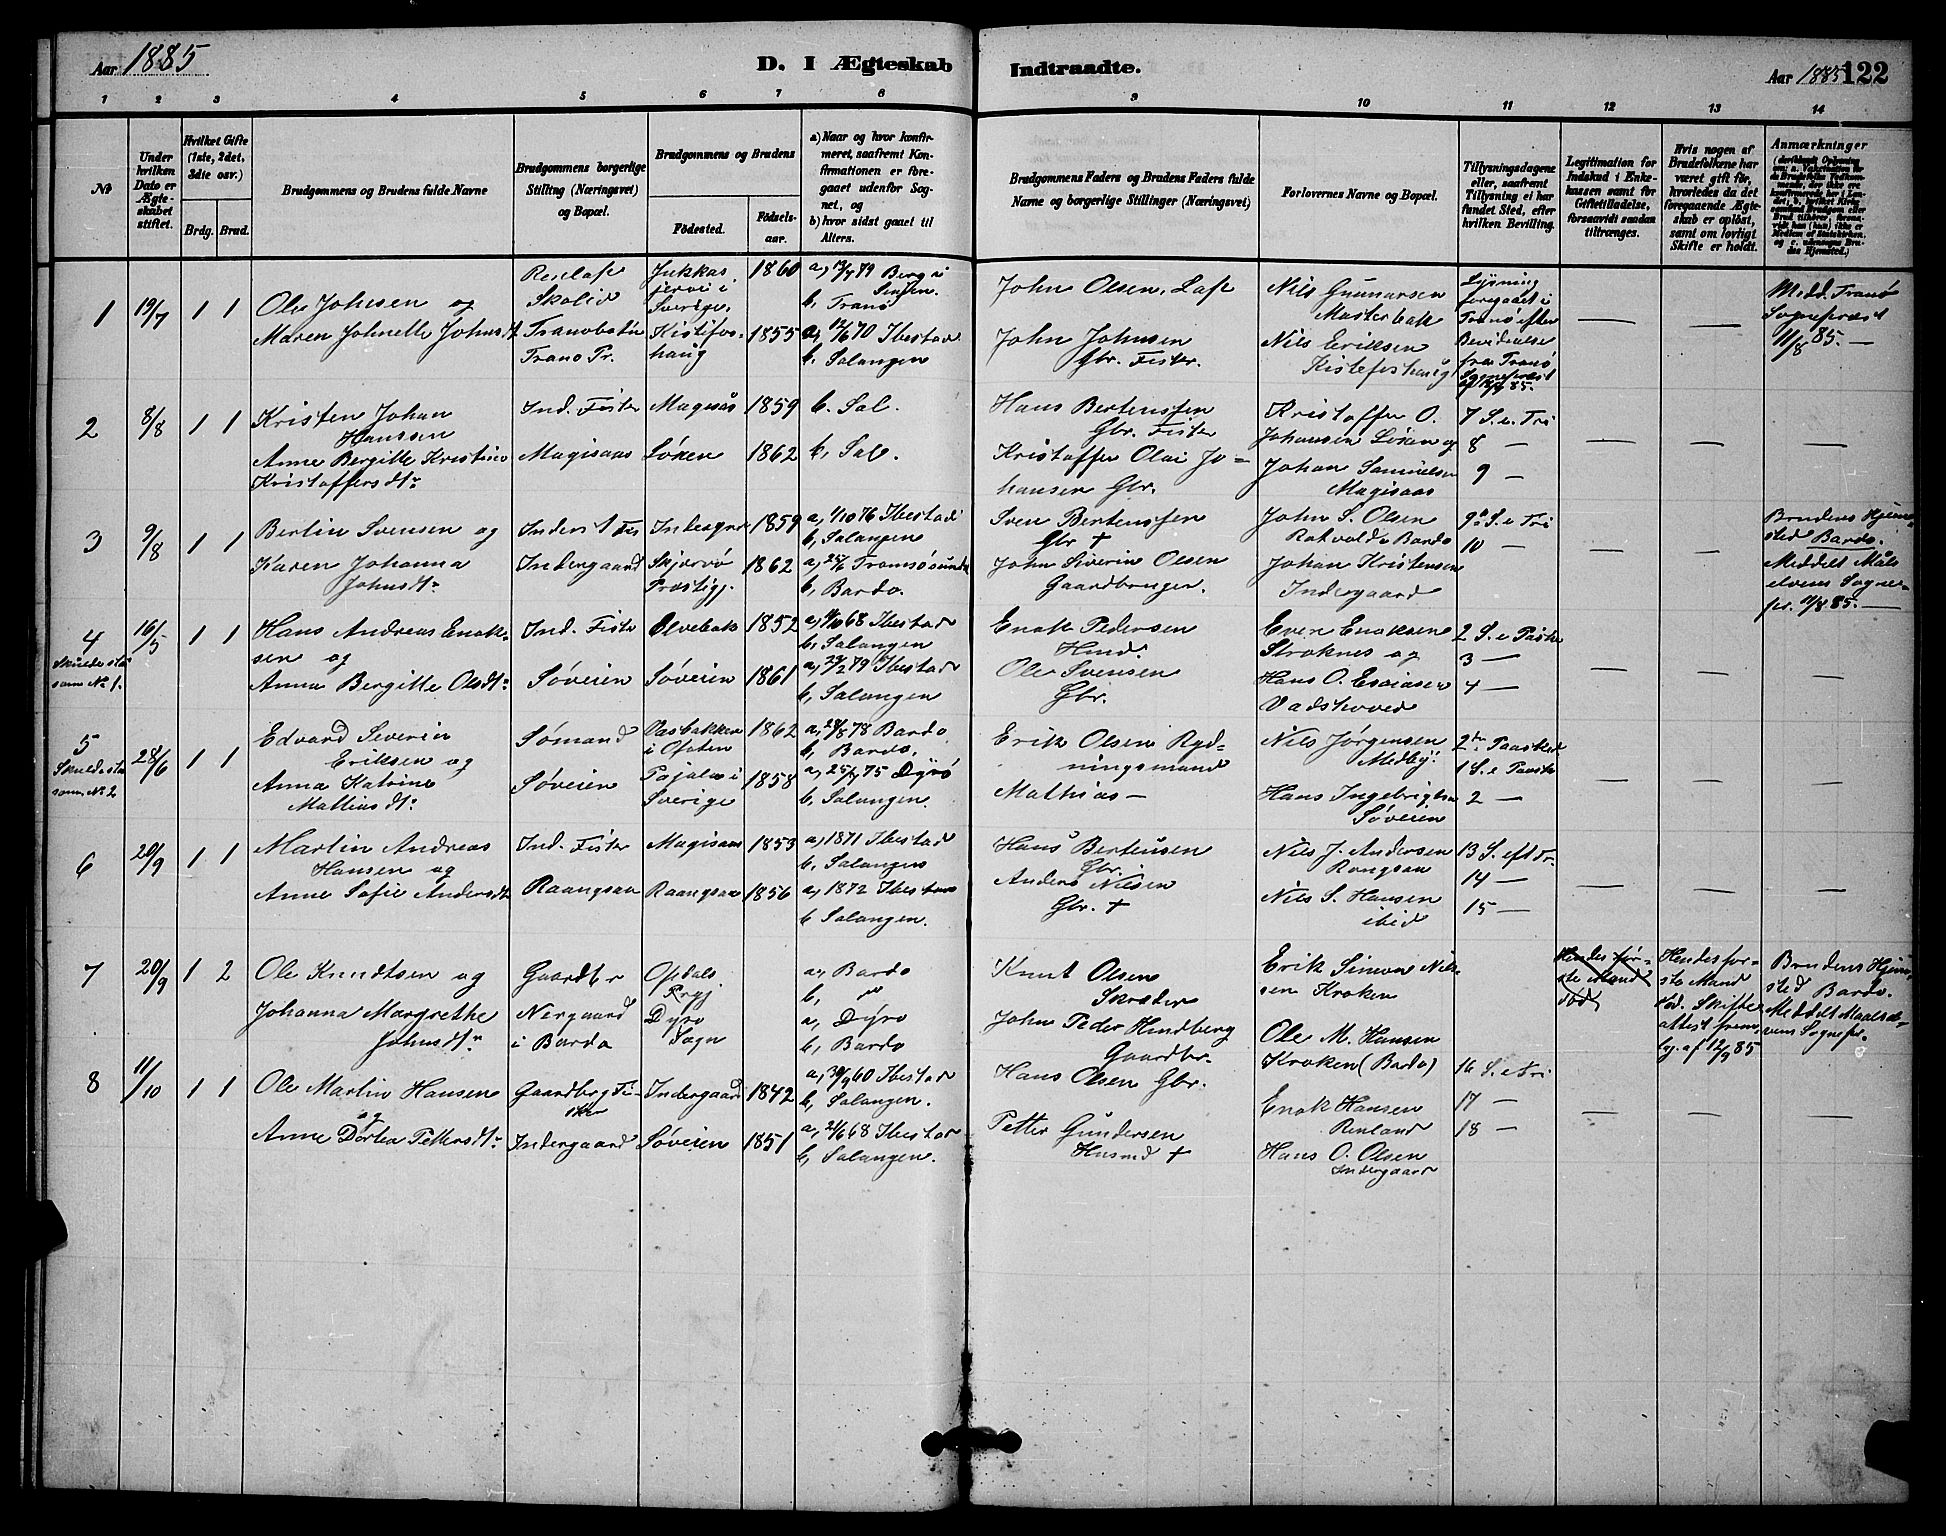 Aar 1885
D. I Ægteskab Indtraadte.
Aar 1885 122
1 2 3 4 5 6 7 8 9 10 11 12 13 14
No
Under hvilken Dato er Ægteskabet stiftet.
Hvilket Gifte (1ste, 2det, 3die osv.)
Brdg. Brud.
Brudgommens og Brudens fulde Navne
Brudgommens borgerlige Stilling (Næringsvei) og Bopæl.
Brudgommens og Brudens
Fødested.
Fødselsaar.
a) Naar og hvor konfirmeret, saafremt Konfirmationen er foregaaet udenfor Sognet, og
b) hvor sidst gaaet til Alters.
Brudgommens Faders og Brudens Faders fulde Navne og borgerlige Stillinger (Næringsvei)
Forlovernes Navne og Bopæl.
Tillysningsdagene eller, saafremt Tillysning ei har fundet Sted, efter hvilken Bevilling.
Legitimation for Indskud i Enkekassen samt for Giftetilladelse, forsaavidt saadan tiltrænges.
Hvis nogen af Brudefolkene har været gift før, hvorledes da det foregaaende Ægteskab er opløst, samt om lovligt Skifte er holdt.
Anmærkninger
1 19/7 1 1
Ole Johnsen og
Maren Johnette Johnsdt
Renlap
Skolid
Tranobotn
Trano Pr.
Jukkas
jervi i
Sverige.
Kistefos
haug
1860
1855
a, 13/7 79 Berg i
Senjen.
b, Tranø
a, 12/6 70 Ibestad
b, Salangen
John Olsen, Lap
John Johnsen
Gbr. Fisker.
Nils Gunnarsen
Masterbak
Nils Eriksen
Kistefoshaug
Lysning
foregaaet i
Tranø efter
Bevidnelse
fra Tranø
Sognepræst
85.
—
—
Medd. Tranø
Sognepræst
11/8 85. —
2 8/8 1 1
Kristen Johan
Hanssen
Anne Bergitte Kristine
Kristoffersdt.
Ind. Fisker
Magisaas
Magisås
Løken
1859
1862
b. Sal.
b, Sal.
Hans Bertenssen
Gbr. Fisker
Kristoffer Olai Jo-
hansen Gbr.
Kristoffer O.
Johansen Løken og
Johan Samuelsen
Magisaas
7 S. e. Tri
8 —
9 —
—
—
—
3 9/8 1 1
Bertin Svensen og
Karen Johanna
Johnsdt.
Inderst Fis
Indergaard
Indergrd
Skjervø
Præstigj.
1859
1862
a, 1/10 76 Ibestad
b, Salangen
a, 25/6 Tromsøsundet
b, Bardo.
Sven Bertenssen
Gbr †
John Siverin Olsen
Gaardbruger.
John S. Olsen
Rotvold Bardo
Johan Kristensen
Indergaard
9de S. e Tri
10 —
—
—
Brudens Hjem-
sted Bardo.
Meddelt Måls
elvens Sogne-
pr. 11/8 85. —
4 16/5 1 1
Skulde stå
som No 1.
Hans Andreas Enok-
sen og
Anna Bergitte Olsdt.
Ind. Fisker
Søveien
Elvebak
Søveien
1852
1861
a, 11/10 68 Ibestad
b, Salangen
a, 29/2 79 Ibestad
b, Salangen
Enok Pedersen
Hmd.
Ole Svensen
Gbr.
Even Enoksen
Stroknes og
Hans O. Esaiasen
Vadshoved
2 S. e Påske
3 —
4 —
—
—
—
5 28/6 1 1
Skulde stå
som. No 2
Edvard Severin
Eriksen og
Anna Katrine
Mathiasdt.
Sømand
Søveien
Vasbakken
i Ofoten
Pajala i
Sverige
1862
1858
a, 28/8 78 Bardo
b, Bardo.
a, 25/7 75 Dyrø
b, Salangen.
Erik Olsen Ryd-
ningsmand
Mathias —
Nils Jørgensen
Medby.
Hans Ingebrigtsn
Søveien
2den Paasked
1 S. e Paaske
2 —
—
—
—
6 20/9 1 1
Martin Andreas
Hansen og
Anne Sofie Andersdt
Ind. Fisker
Raangsaa
Magisaas
Raangsaa
1853
1856
a, 1871 Ibestad
b, Salangen
a, 1872 Ibestad
b Salangen.
Hans Bertensen
Gbr.
Anders Nilsen
Gbr. †
Nils J. Andersen
Rongsaa
Nils S. Hansen
ibid
13 S. eft Tr.
14 —
15 —
—
—
—
7 20/9 1 2
Ole Knudtsen og
Johanna Margrethe
Johnsdt.
Gaardbr
Nergaard
i Bardo
Opdals
Prgj.
Dyrø
Sogn
a, Bardo
b, "
a, Dyrø
b, Bardo
Knut Olsen
Skræder
John Peder Hindberg
Gaardbr.
Erik Simon Nils-
sen Kroken
Ole M. Hansen
Kroken (Bardo)
Hendes før-
ste Mand
død
Hendes før-
ste Mand
død. Skifte
attest frem-
lg. af 12/9 85
Brudens Hjem-
sted Bardo.
Meddelt Maalsel-
vens Sognepr.
8 11/10 1 1
Ole Martin Hansen
og
Anne Dortea Pettersdt.
Gaardbrg Fi-
sker
Indergaard
Indergaard
Søveien
1842
1851
a, 30/9 60 Ibestad
b, Salangen.
a, 21/6 68 Ibestad
b, Salangen.
Hans Olsen Gbr.
Petter Gundersen
Husmd †
Enok Hansen
Renland
Hans O. Olsen
Indergaard
16 S. e Tri
17 —
18 —
—
—
—